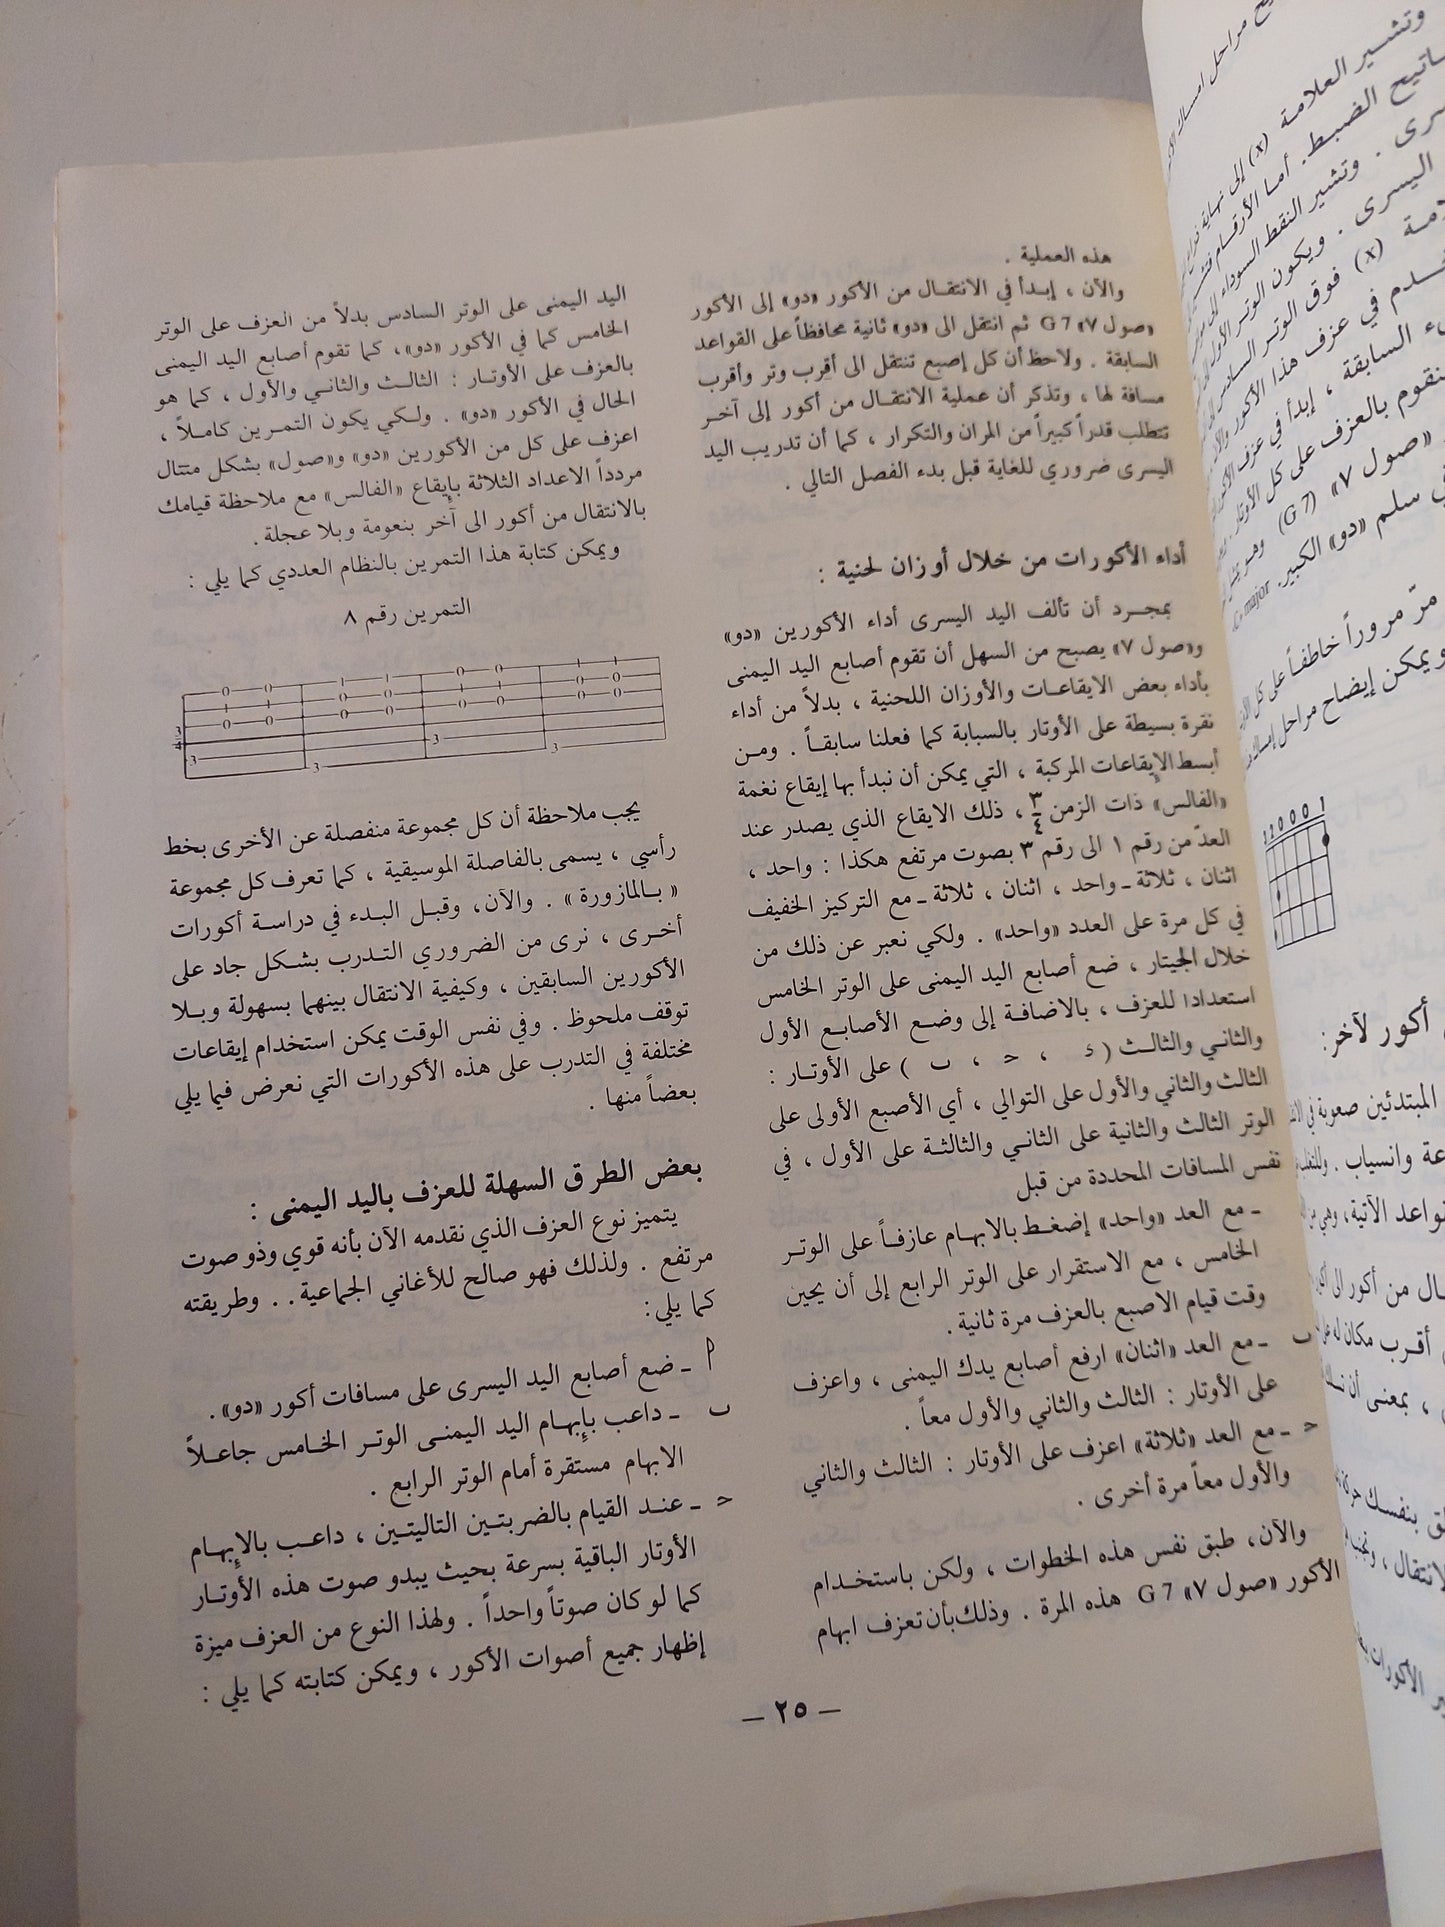 هذه العملية .
والآن ، إبدأ في الانتقال من الأكور «دو» إلى الأكور
«صول ٧» G 7 ثم انتقل الى «دو» ثانية محافظاً على القواعد
السابقة . ولاحظ أن كل إصبع تنتقل الى أقرب وتر وأقرب
مسافة لها ، وتذكر أن عملية الانتقال من أكور إلى آخر
تتطلب قدراً كبيراً من المران والتكرار ، كما أن تدريب اليد
اليسرى ضروري للغاية قبل بدء الفصل التالي .
أداء الأكورات من خلال أوزان لحنية :
بمجرد أن تألف اليد اليسرى أداء الأكورين «دو»
و«صول ٧» يصبح من السهل أن تقوم أصابع اليد اليمنى
بأداء بعض الايقاعات والأوزان اللحنية ، بدلاً من أداء
نقرة بسيطة على الأوتار بالسبابة كما فعلنا سابقاً . ومن
أبسط الإيقاعات المركبة ، التي يمكن أن نبدأ بها إيقاع نغمة
«الفالس» ذات الزمن ٣/٤ ، ذلك الايقاع الذي يصدر عند
العدّ من رقم ١ الى رقم ٣ بصوت مرتفع هكذا : واحد ،
اثنان ، ثلاثة ـ واحد ، اثنان ، ثلاثة ـ مع التركيز الخفيف
في كل مرة على العدد «واحد» . ولكي نعبر عن ذلك من
خلال الجيتار ، ضع أصابع اليد اليمنى على الوتر الخامس
استعدادا للعزف ، بالاضافة إلى وضع الأصابع الأول
والثاني والثالث ( د ، حـ ، ب ) على الأوتار :
الثالث والثاني والأول على التوالي ، أي الأصبع الأولى على
الوتر الثالث والثانية على الثاني والثالثة على الأول ، في
نفس المسافات المحددة من قبل
ـ مع العد «واحد» إضغط بالابهام عازفاً على الوتر
الخامس ، مع الاستقرار على الوتر الرابع إلى أن يحين
وقت قيام الاصبع بالعزف مرة ثانية .
ب ـ مع العد «اثنان» ارفع أصابع يدك اليمنى ، واعزف
على الأوتار : الثالث والثاني والأول معاً .
حـ ـ مع العد «ثلاثة» اعزف على الأوتار : الثالث والثاني
والأول معاً مرة أخرى .
والآن، طبق نفس هذه الخطوات ، ولكن باستخدام
الأكور «صول ٧» G 7 هذه المرة . وذلك بأن تعزف ابهام
اليد اليمنى على الوتر السادس بدلاً من العزف على الوتر
الخامس كما في الأكور «دو»، كما تقوم أصابع اليد اليمنى
بالعزف على الأوتار : الثالث والثاني والأول ، كما هو
الحال في الأكور «دو» . ولكي يكون التمرين كاملاً ،
اعزف على كل من الأكورين «دو» و«صول» بشكل متتال
مردداً الاعداد الثلاثة بإيقاع «الفالس» مع ملاحظة قيامك
بالانتقال من أكور الى آخر بنعومة وبلا عجلة .
ويمكن كتابة هذا التمرين بالنظام العددي كما يلي :
التمرين رقم ٨
0 0 1 1 0 0 1 1
1 1 0 0 1 1 0 0
0 0 0 0 0 0 0 0
3/4
3 3 3 3
يجب ملاحظة أن كل مجموعة منفصلة عن الأخرى بخط
رأسي ، يسمى بالفاصلة الموسيقية ، كما تعرف كل مجموعة
« بالمازورة » . والآن، وقبل البدء في دراسة أكورات
أخرى ، نرى من الضروري التدرب بشكل جاد على
الأكورين السابقين ، وكيفية الانتقال بينهما بسهولة وبلا
توقف ملحوظ . وفي نفس الوقت يمكن استخدام إيقاعات
مختلفة في التدرب على هذه الأكورات التي نعرض فيما يلي
بعضاً منها .
بعض الطرق السهلة للعزف باليد اليمنى :
يتميز نوع العزف الذي نقدمه الآن بأنه قوي وذو صوت
مرتفع . ولذلك فهو صالح للأغاني الجماعية . . وطريقته
كما يلي:
أ ـ ضع أصابع اليد اليسرى على مسافات أكور «دو» .
ب ـ داعب بإبهام اليد اليمنى الوتر الخامس جاعلاً
الابهام مستقرة أمام الوتر الرابع .
حـ ـ عند القيام بالضربتين التاليتين ، داعب بالإبهام
الأوتار الباقية بسرعة بحيث يبدو صوت هذه الأوتار
كما لو كان صوتاً واحداً . ولهذا النوع من العزف ميزة
إظهار جميع أصوات الأكور ، ويمكن كتابته كما يلي :
ـ ٢٥ ـ
وتشير العلامة (x) إلى نهاية
الضبط. أما الأرقام
وتشير النقط السوداء إلى
اليسرى . ويكون الوتر الأول
(x) فوق الوتر السادس
في عزف هذا الأكور
السابقة ، إبدأ في عزف
بالعزف على كل الأوتار
«صول ٧» (G 7)
سلم «دو» الكبير. major
مرّ مروراً خاطفاً على كل
ويمكن إيضاح مراحل إمساك
1 2 0 0 0 1
أكور لآخر:
المبتدئين صعوبة في
وانسياب .
الآتية، وهي من
من أكور الى
أقرب مكان له
، بمعنى أن
بنفسك حركة